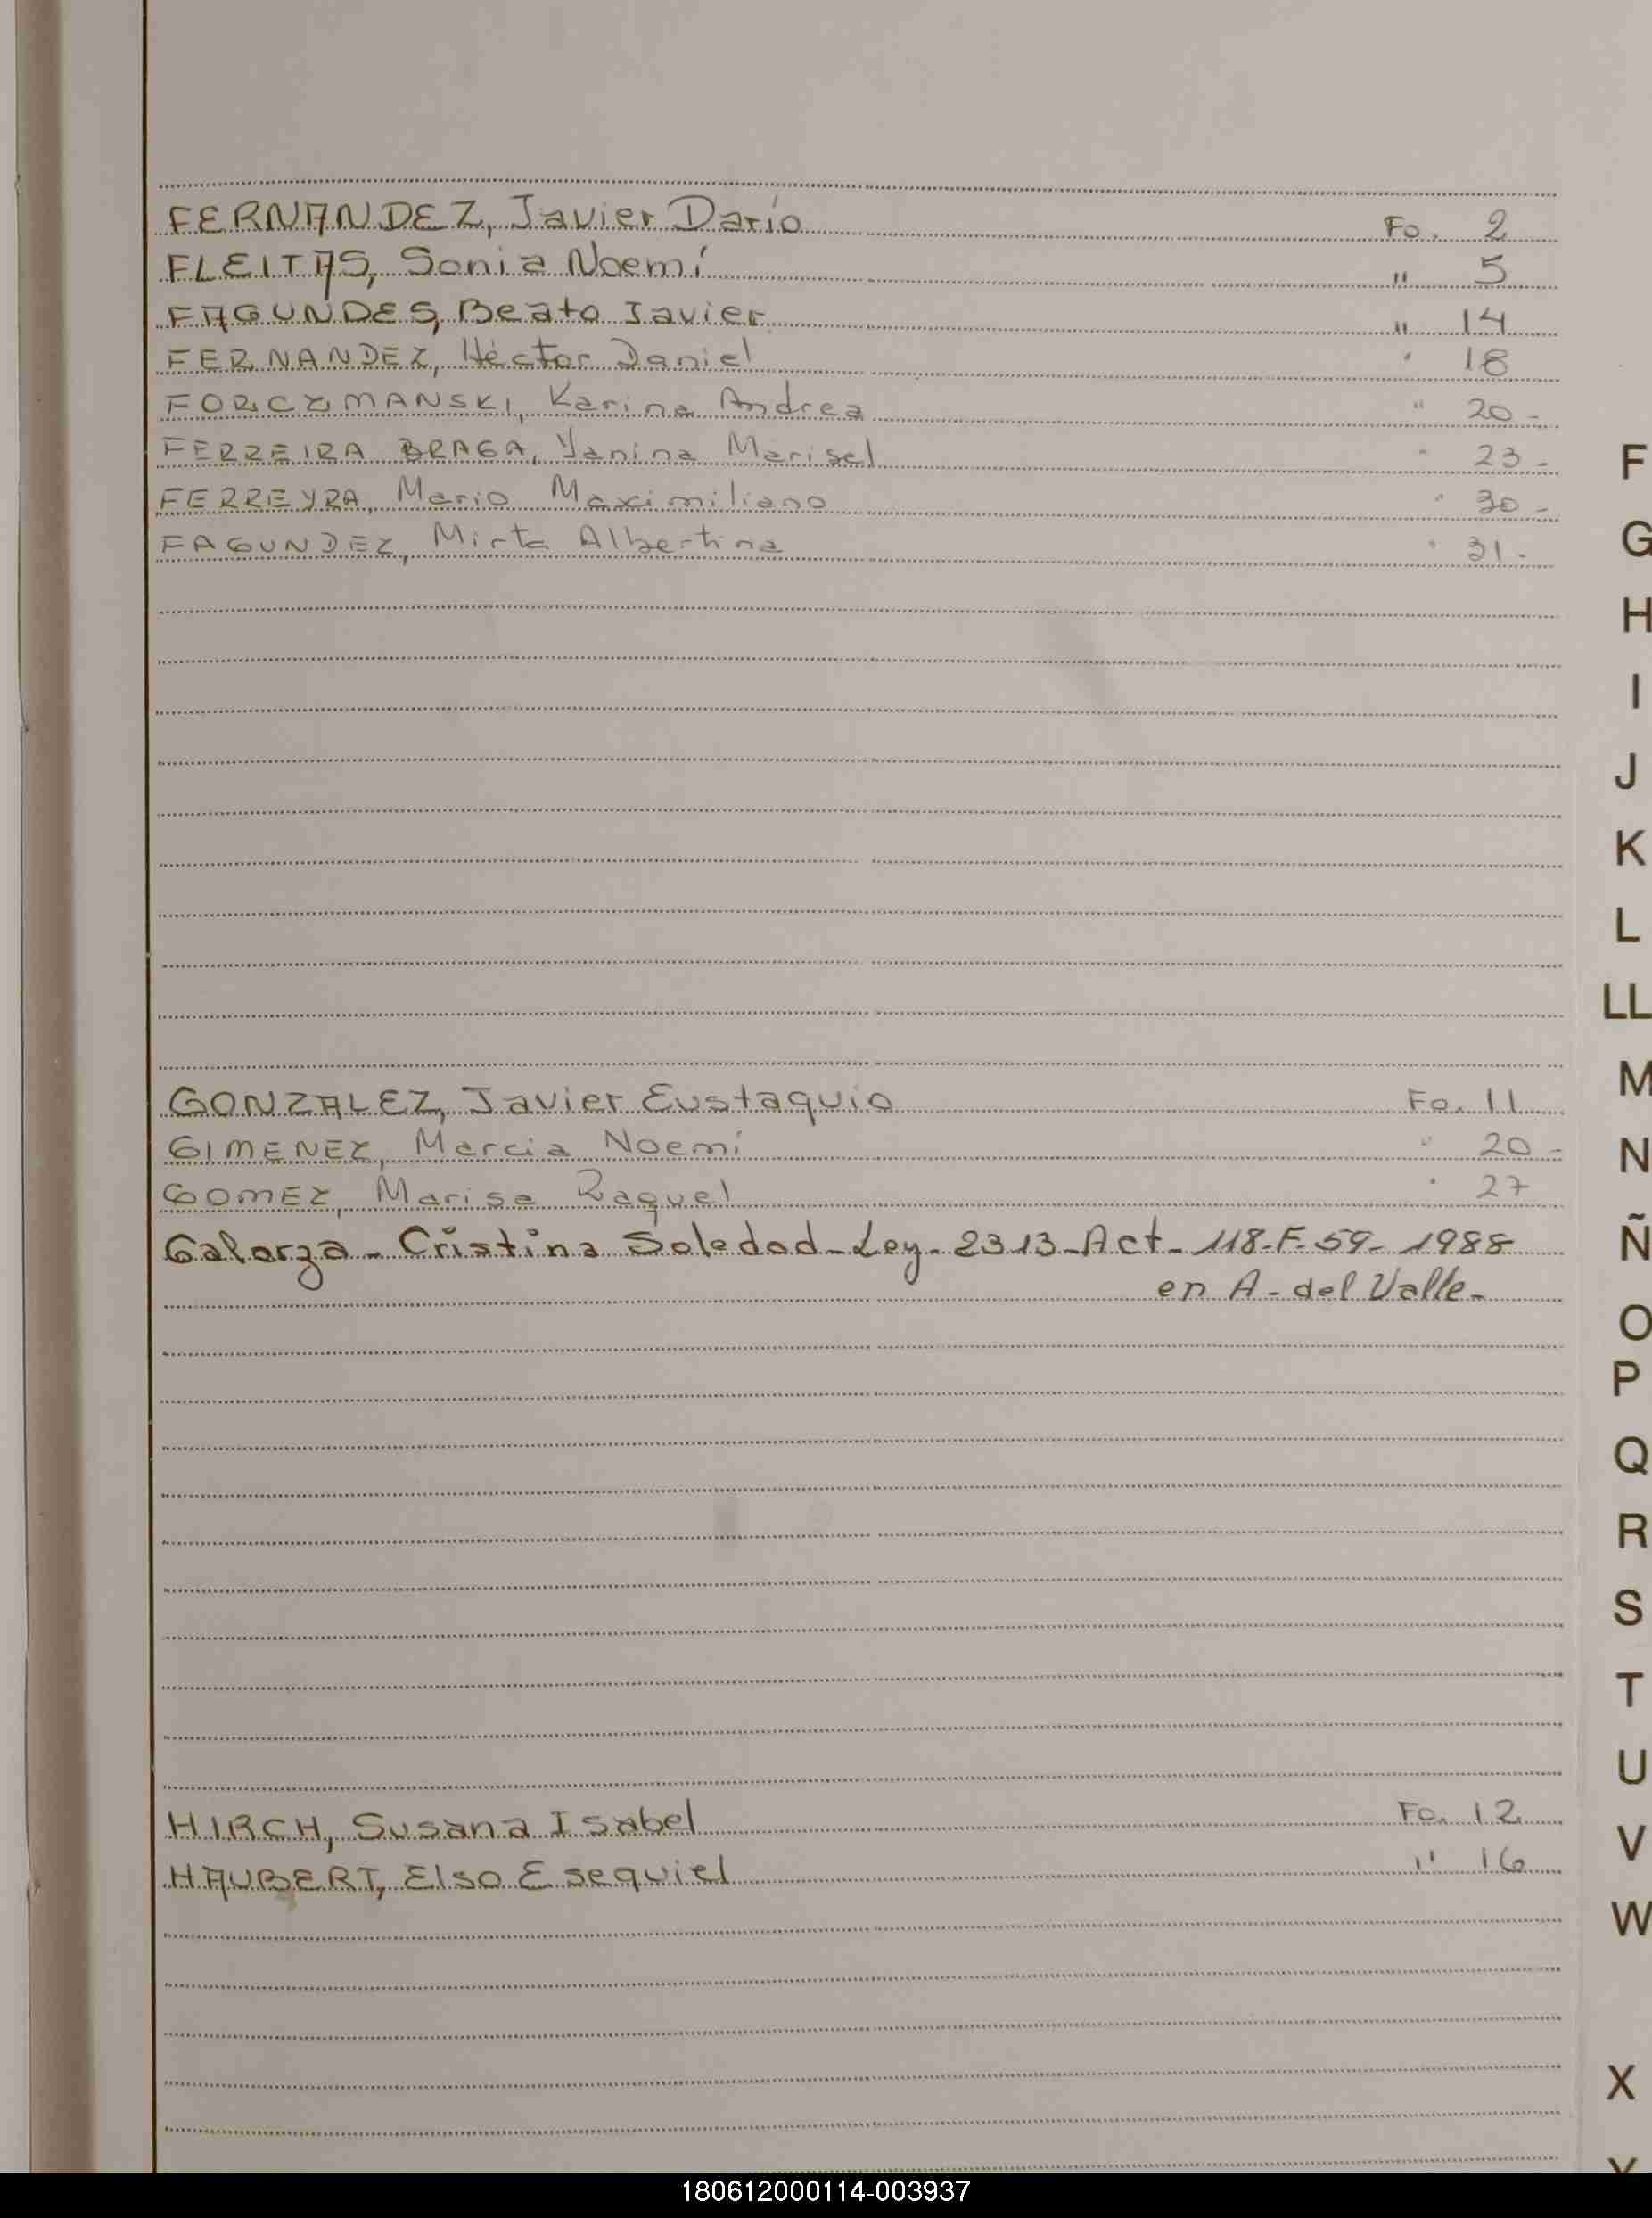 FERNANDEZ, Javier Darío Fo. 2
FLEITAS, Sonia Noemí " 5
FAGUNDES, Beato Javier " 14
FERNANDEZ, Héctor Daniel " 18
FORCZMANSKI, Karina Andrea " 20-
FERREIRA BRAGA, Yanina Marisel " 23-
FERREYRA, Mario Maximiliano " 30-
FAGUNDEZ, Mirta Albertina " 31-
GONZALEZ, Javier Eustaquio Fo. 11
GIMENEZ, Marcia Noemí " 20-
GOMEZ, Marisa Raquel " 27
Galarza - Cristina Soledad - Ley - 2313 - Act - 118 - F. 59 - 1988
en A - del Valle -
HIRCH, Susana Isabel Fo. 12
HAUBERT, Elso Esequiel " 16
F
G
H
I
J
K
L
LL
M
N
Ñ
O
P
Q
R
S
T
U
V
W
X
Y
180612000114-003937